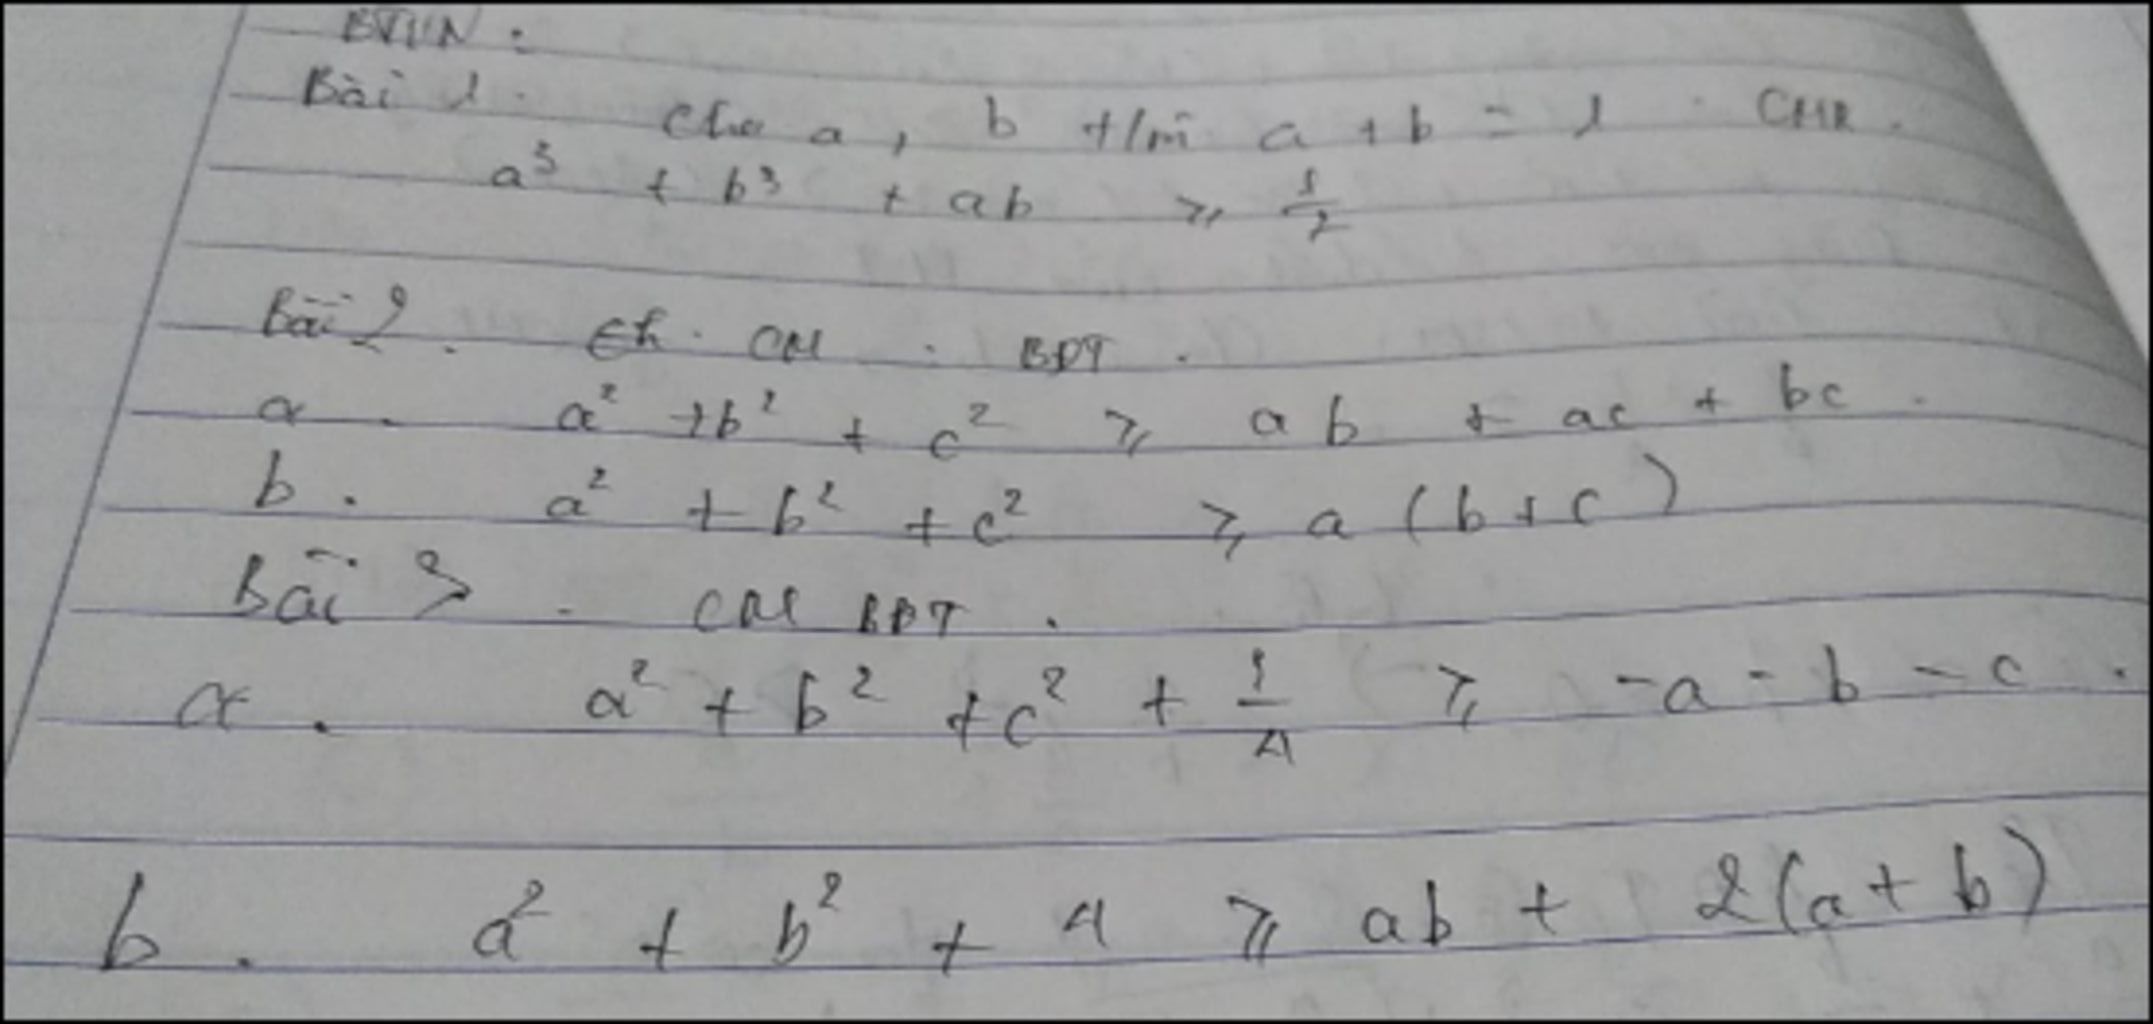 BTVN :
Bài 1. Cho a, b t/m a + b = 1 . CMR.
a³ + b³ + ab ⩾ 1/2
Bài 2. CM : BĐT.
a. a² + b² + c² ⩾ ab + ac + bc.
b. a² + b² + c² ⩾ a (b + c)
Bài 3. CM BĐT.
a. a² + b² + c² + 3/4 ⩾ -a - b - c.
b. a² + b² + 4 ⩾ ab + 2(a + b)